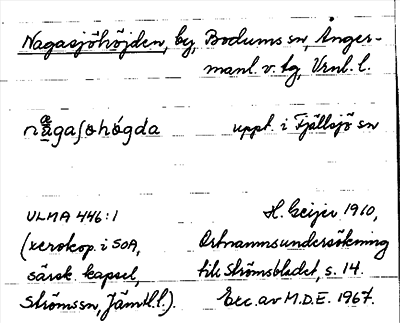 Nagasjöhöjden, by, Bodums sn, Ånger-
manl. v. tg, Vrnl. l.
uppt. i Fjällsjö sn
ULMA 446:1
H. Geijer 1910,
(xerokop. i SOA,
Ortnamnsundersökning
särsk. kapsel,
till Strömsbladet, s. 14.
Ströms sn, Jämtl. l.).
Exc. av M.D.E. 1967.